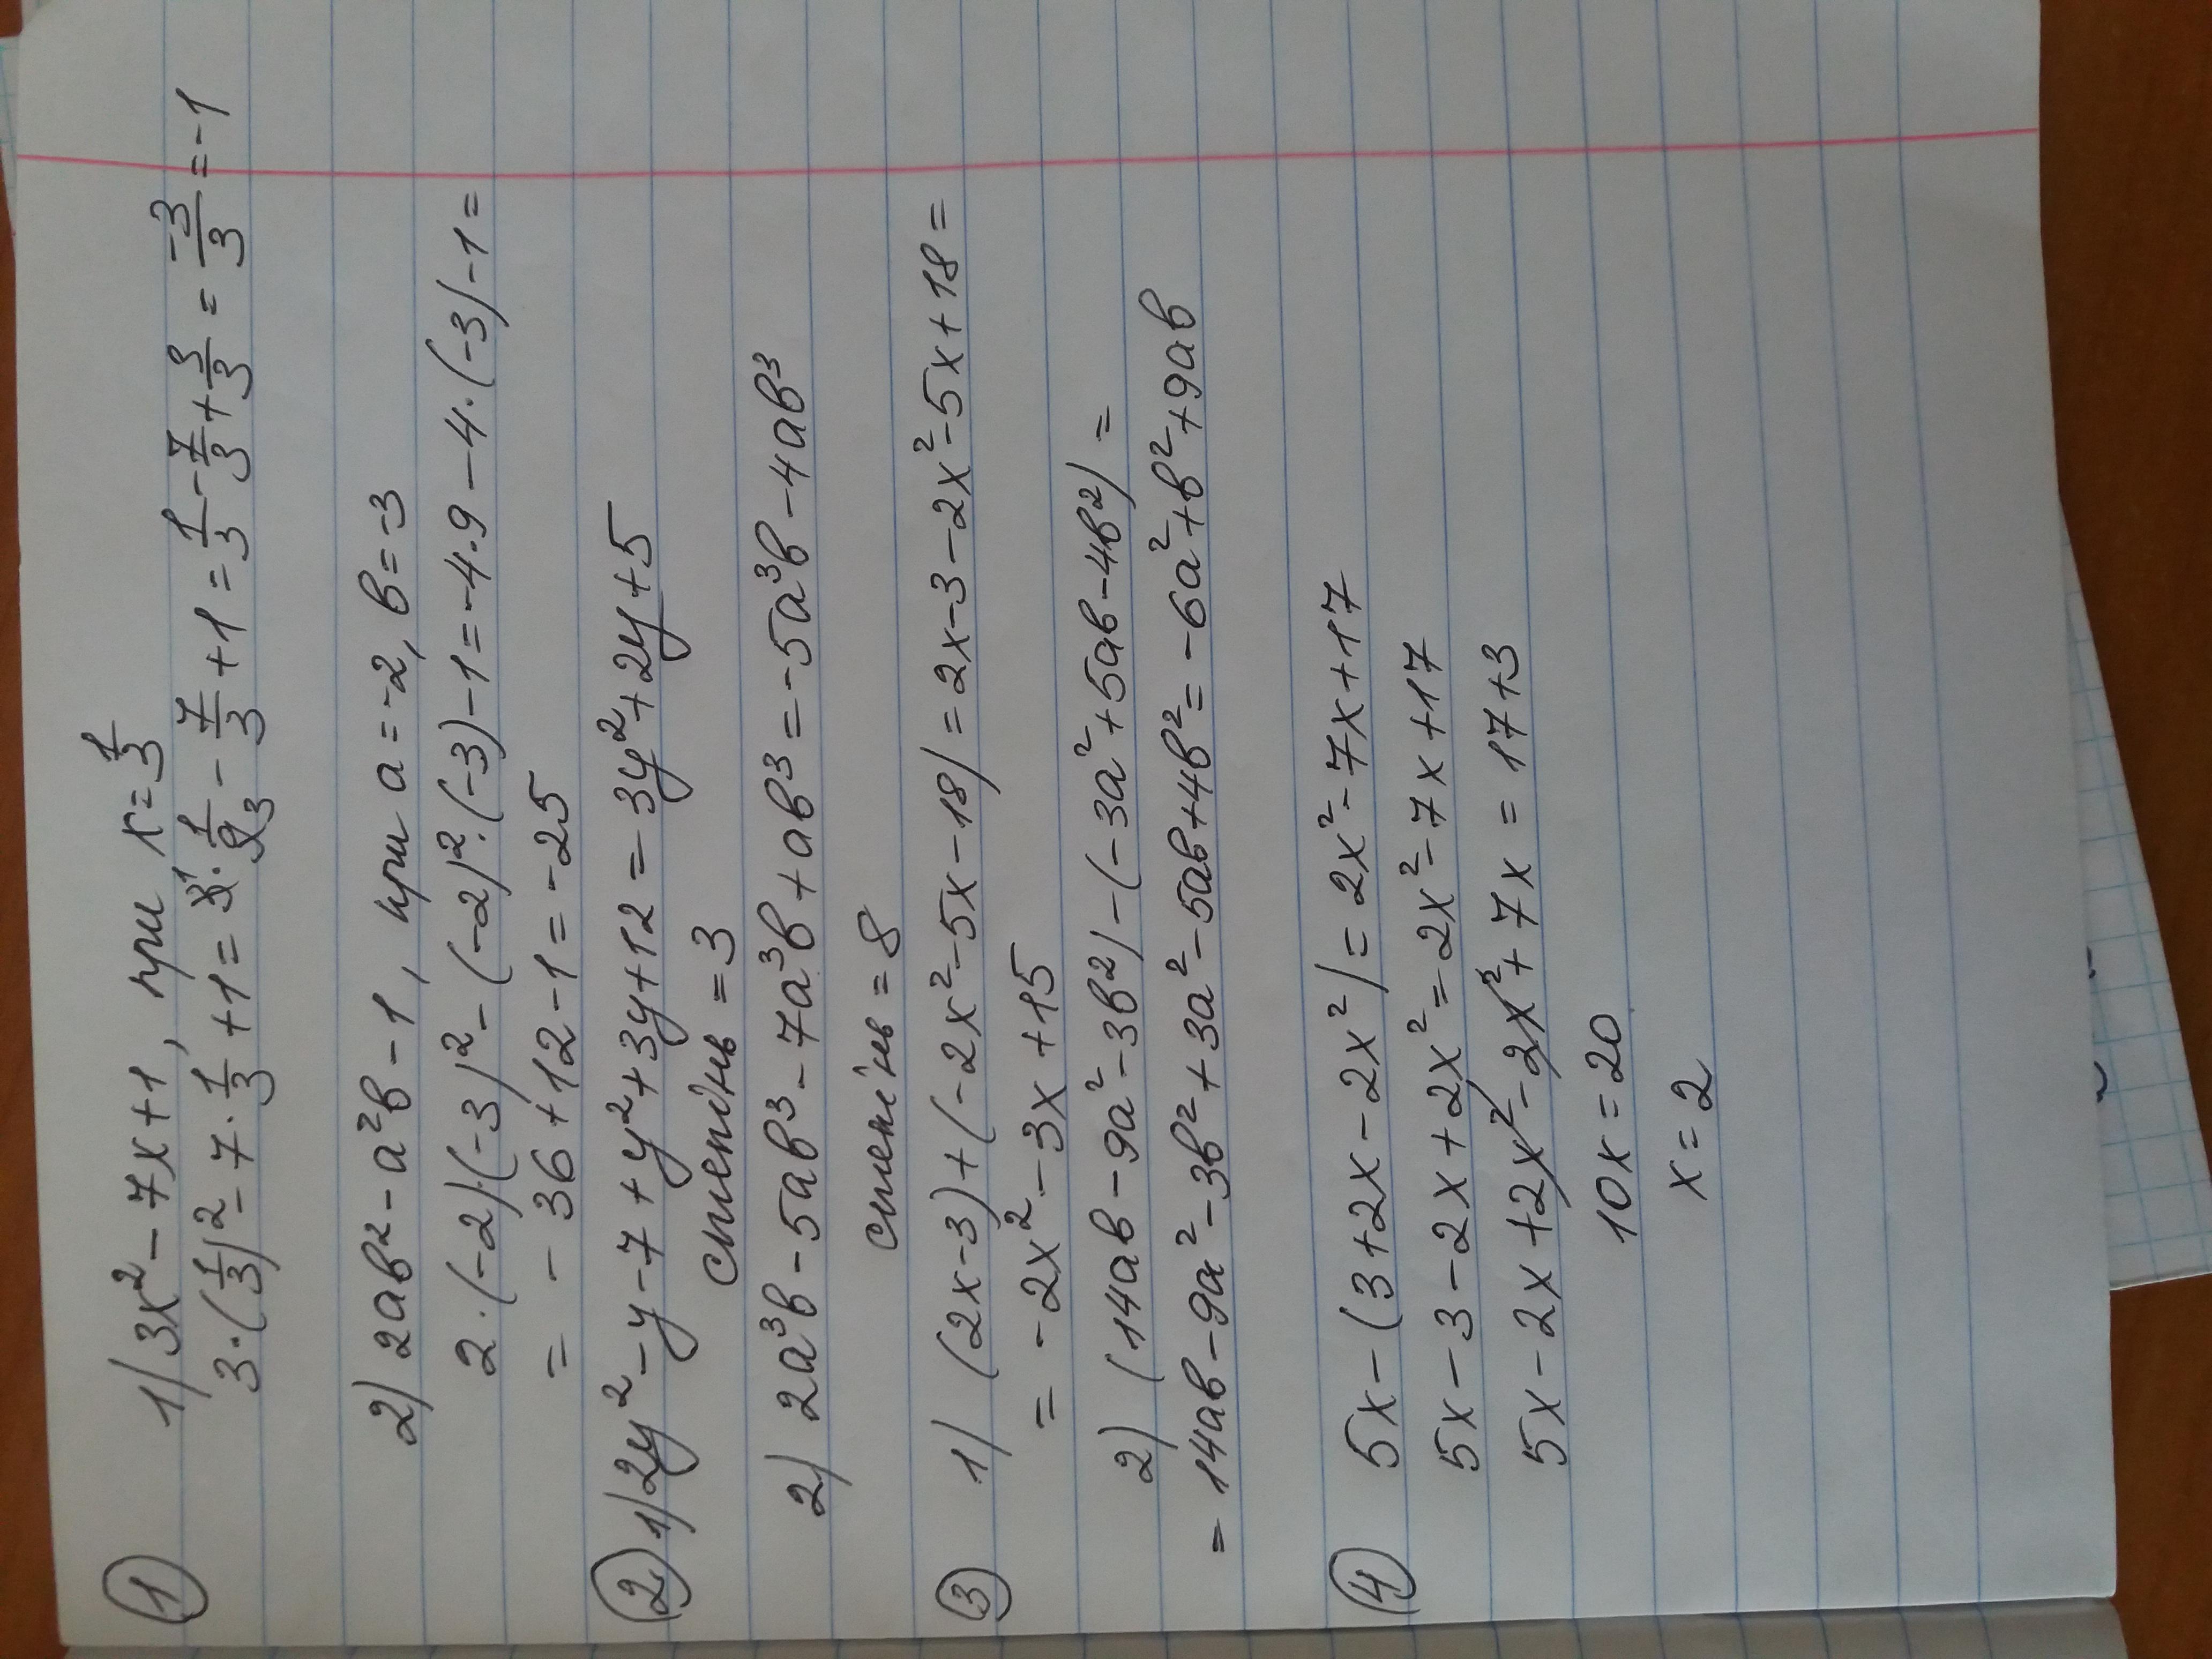 ① 1) 3x² - 7x + 1, при x = 1/3
3·(1/3)² - 7·1/3 + 1 = 3¹·1/9₃ - 7/3 + 1 = 1/3 - 7/3 + 3/3 = -3/3 = -1
2) 2ав² - а²в - 1, при а = -2, в = -3
2·(-2)·(-3)² - (-2)²·(-3) - 1 = -4·9 - 4·(-3) - 1 =
= - 36 + 12 - 1 = -25
② 1) 2y² - y - 7 + y² + 3y + 12 = 3y² + 2y + 5
степінь = 3
2) 2а³в - 5ав³ - 7а³в + ав³ = -5а³в - 4ав³
степінь = 8
③ 1) (2x - 3) + (-2x² - 5x - 18) = 2x - 3 - 2x² - 5x + 18 =
= -2x² - 3x + 15
2) (14ав - 9а² - 3в²) - (-3а² + 5ав - 4в²) =
= 14ав - 9а² - 3в² + 3а² - 5ав + 4в² = -6а² + в² + 9ав
④ 5x - (3 + 2x - 2x²) = 2x² - 7x + 17
5x - 3 - 2x + 2x² = 2x² - 7x + 17
5x - 2x + 2x² - 2x² + 7x = 17 + 3
10x = 20
x = 2